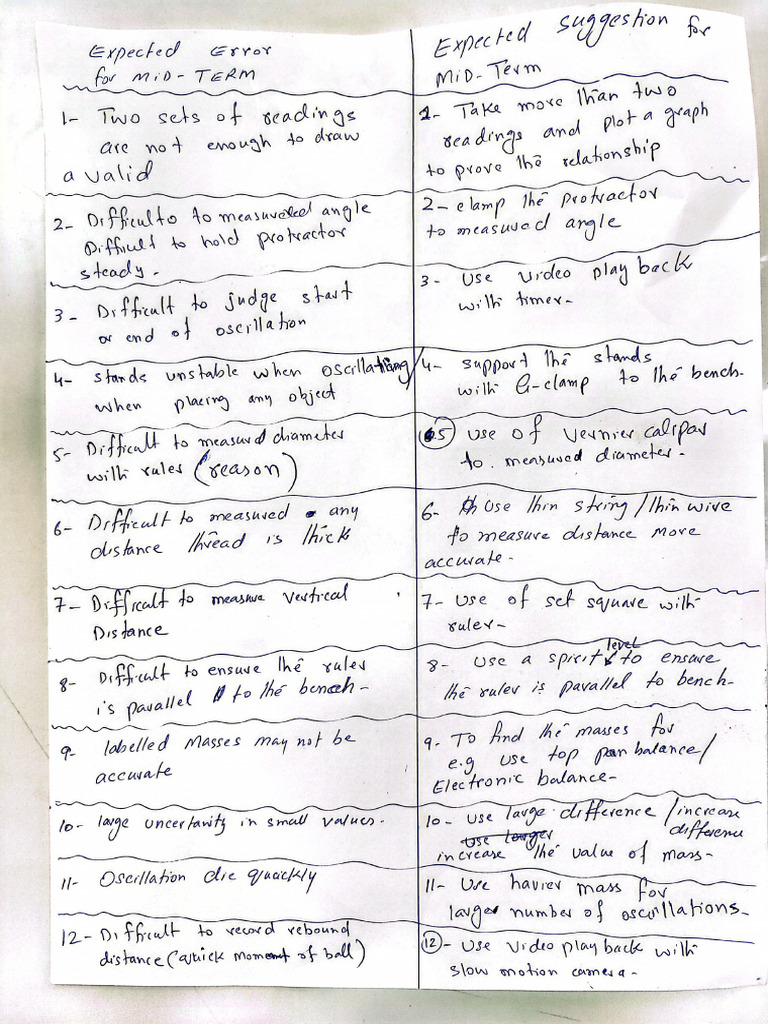 Expected Error
for MID-TERM
Expected Suggestion for
MID-Term
1- Two sets of readings
are not enough to draw
a valid
1- Take more than two
readings and plot a graph
to prove the relationship
2- Difficulto to measureded angle
Difficult to hold protractor
steady.
2- clamp the protractor
to measured angle
3- Difficult to judge start
or end of oscillation
3- Use video play back
with timer-
4- stands unstable when oscillating/
when placing any object
4- support the stands
with G-clamp to the bench-
5- Difficult to measured diameter
with ruler (reason)
5 use of vernier calipar
to measured diameter-
6- Difficult to measured any
distance thread is thick
6- Use thin string/thin wire
to measure distance more
accurate-
7- Difficult to measure vertical
Distance
7- Use of set square with
ruler-
8- Difficult to ensure the ruler
is parallel to the bench-
8- Use a spirit level to ensure
the ruler is parallel to bench-
9- labelled Masses may not be
accurate
9- To find the masses for
e.g use top pan balance/
Electronic balance-
10- large uncertainity in small values-
10- use large difference /increase
use larger difference
increase the value of mass-
11- Oscillation die quickly
11- Use havier mass for
larger number of oscillations-
12- Difficult to record rebound
distance (quick moment of ball)
12- Use video play back with
slow motion camera-